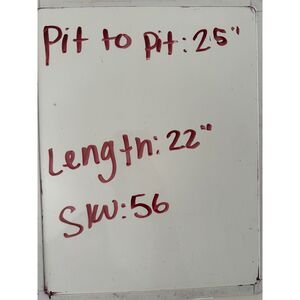 Pit to pit: 25"
Length: 22"
SKU: 56